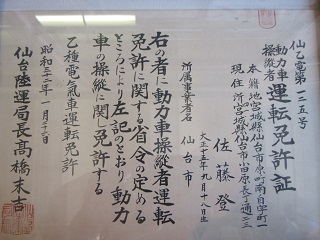 仙乙電第一二五号
動力車
操縦者
運転免許証
本籍地宮城県仙台市原町南目字町一
現住所宮城県仙台市小田原長丁通二三
佐藤登
大正十五年九月十八日生
所属事業者名 仙台市
右の者に動力車操縦者運転
免許に関する省令の定める
ところにより左記のとおり動力
車の操縦に関し免許する
乙種電気車運転免許
昭和三二年一月三一日
仙台陸運局長高橋末吉